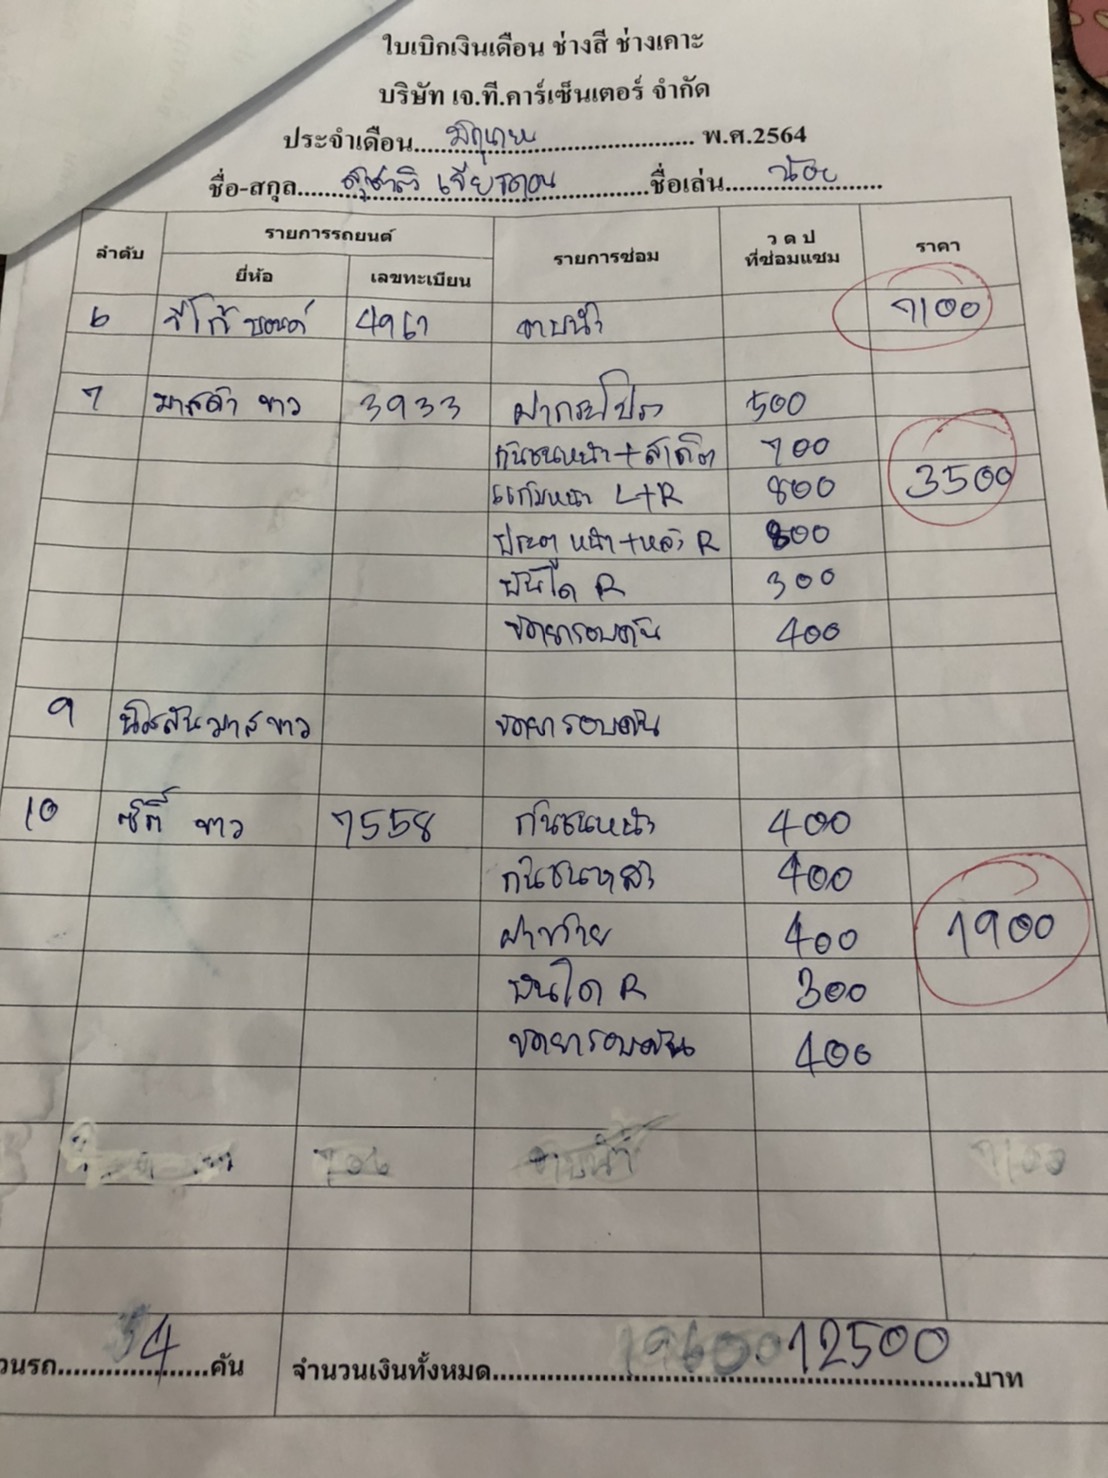 ใบเบิกเงินเดือน ช่างสี ช่างเคาะ
บริษัท เจ.ที.คาร์เซ็นเตอร์ จำกัด
ประจำเดือน....มิถุนายน.... พ.ศ.2564
ชื่อ-สกุล....สุชาติ เจียรดอน....ชื่อเล่น....น้อย....
ลำดับ รายการรถยนต์ รายการซ่อม ว ด ป ที่ซ่อมแซม ราคา
ยี่ห้อ เลขทะเบียน
6 วีโก้ บอนด์ 4967 อาบน้ำ 7100
7 มาสด้า ขาว 3933 ฝากระโปรง 500
กันชนหน้า+สเกิต 700
แก้มหน้า L+R 800 3500
ประตู หน้า+หลัง R 800
บันได R 300
ขัดยารอบคัน 400
9 นิสสันมาสขาว ขัดยารอบคัน
10 ซิตี้ ขาว 7558 กันชนหน้า 400
กันชนหลัง 400
ฝาท้าย 400 1900
บันได R 300
ขัดยารอบคัน 400
อาบน้ำ 7100
วนรถ....4....คัน จำนวนเงินทั้งหมด....12500....บาท